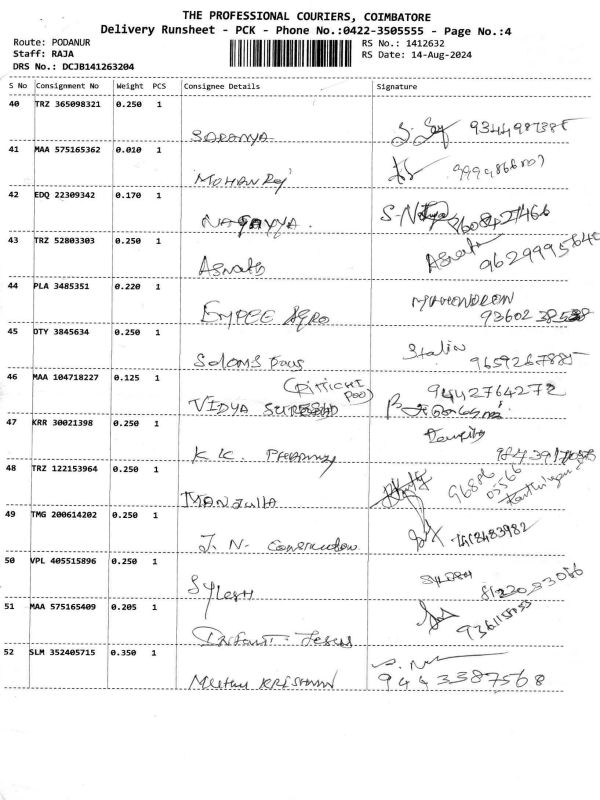 THE PROFESSIONAL COURIERS, COIMBATORE
Delivery Runsheet - PCK - Phone No.:0422-3505555 - Page No.:4
Route: PODANUR RS No.: 1412632
Staff: RAJA RS Date: 14-Aug-2024
DRS No.: DCJB141263204
S No Consignment No Weight PCS Consignee Details Signature
40 TRZ 365098321 0.250 1
SARANYA
41 MAA 575165362 0.010 1
MOHAN Raj
42 EDQ 22309342 0.170 1
NAGAYYA. 9608427466
43 TRZ 52803303 0.250 1
9629995640
44 PLA 3485351 0.220 1
EMPEE Agro MAHENDRAN
93602 38538
45 OTY 3845634 0.250 1
Stalin
9659267885
46 MAA 104718227 0.125 1
9442764272
VIDYA SURESH
47 KRR 30021398 0.250 1
K K. Pharmacy
48 TRZ 122153964 0.250 1
96886
05566
MANJULA
49 TMG 200614202 0.250 1
J. N. Construction
50 VPL 405515896 0.250 1
Sylesh
51 MAA 575165409 0.205 1
Infant Jesus
52 SLM 352405715 0.350 1
Muthu KRISHNAN 9443387568